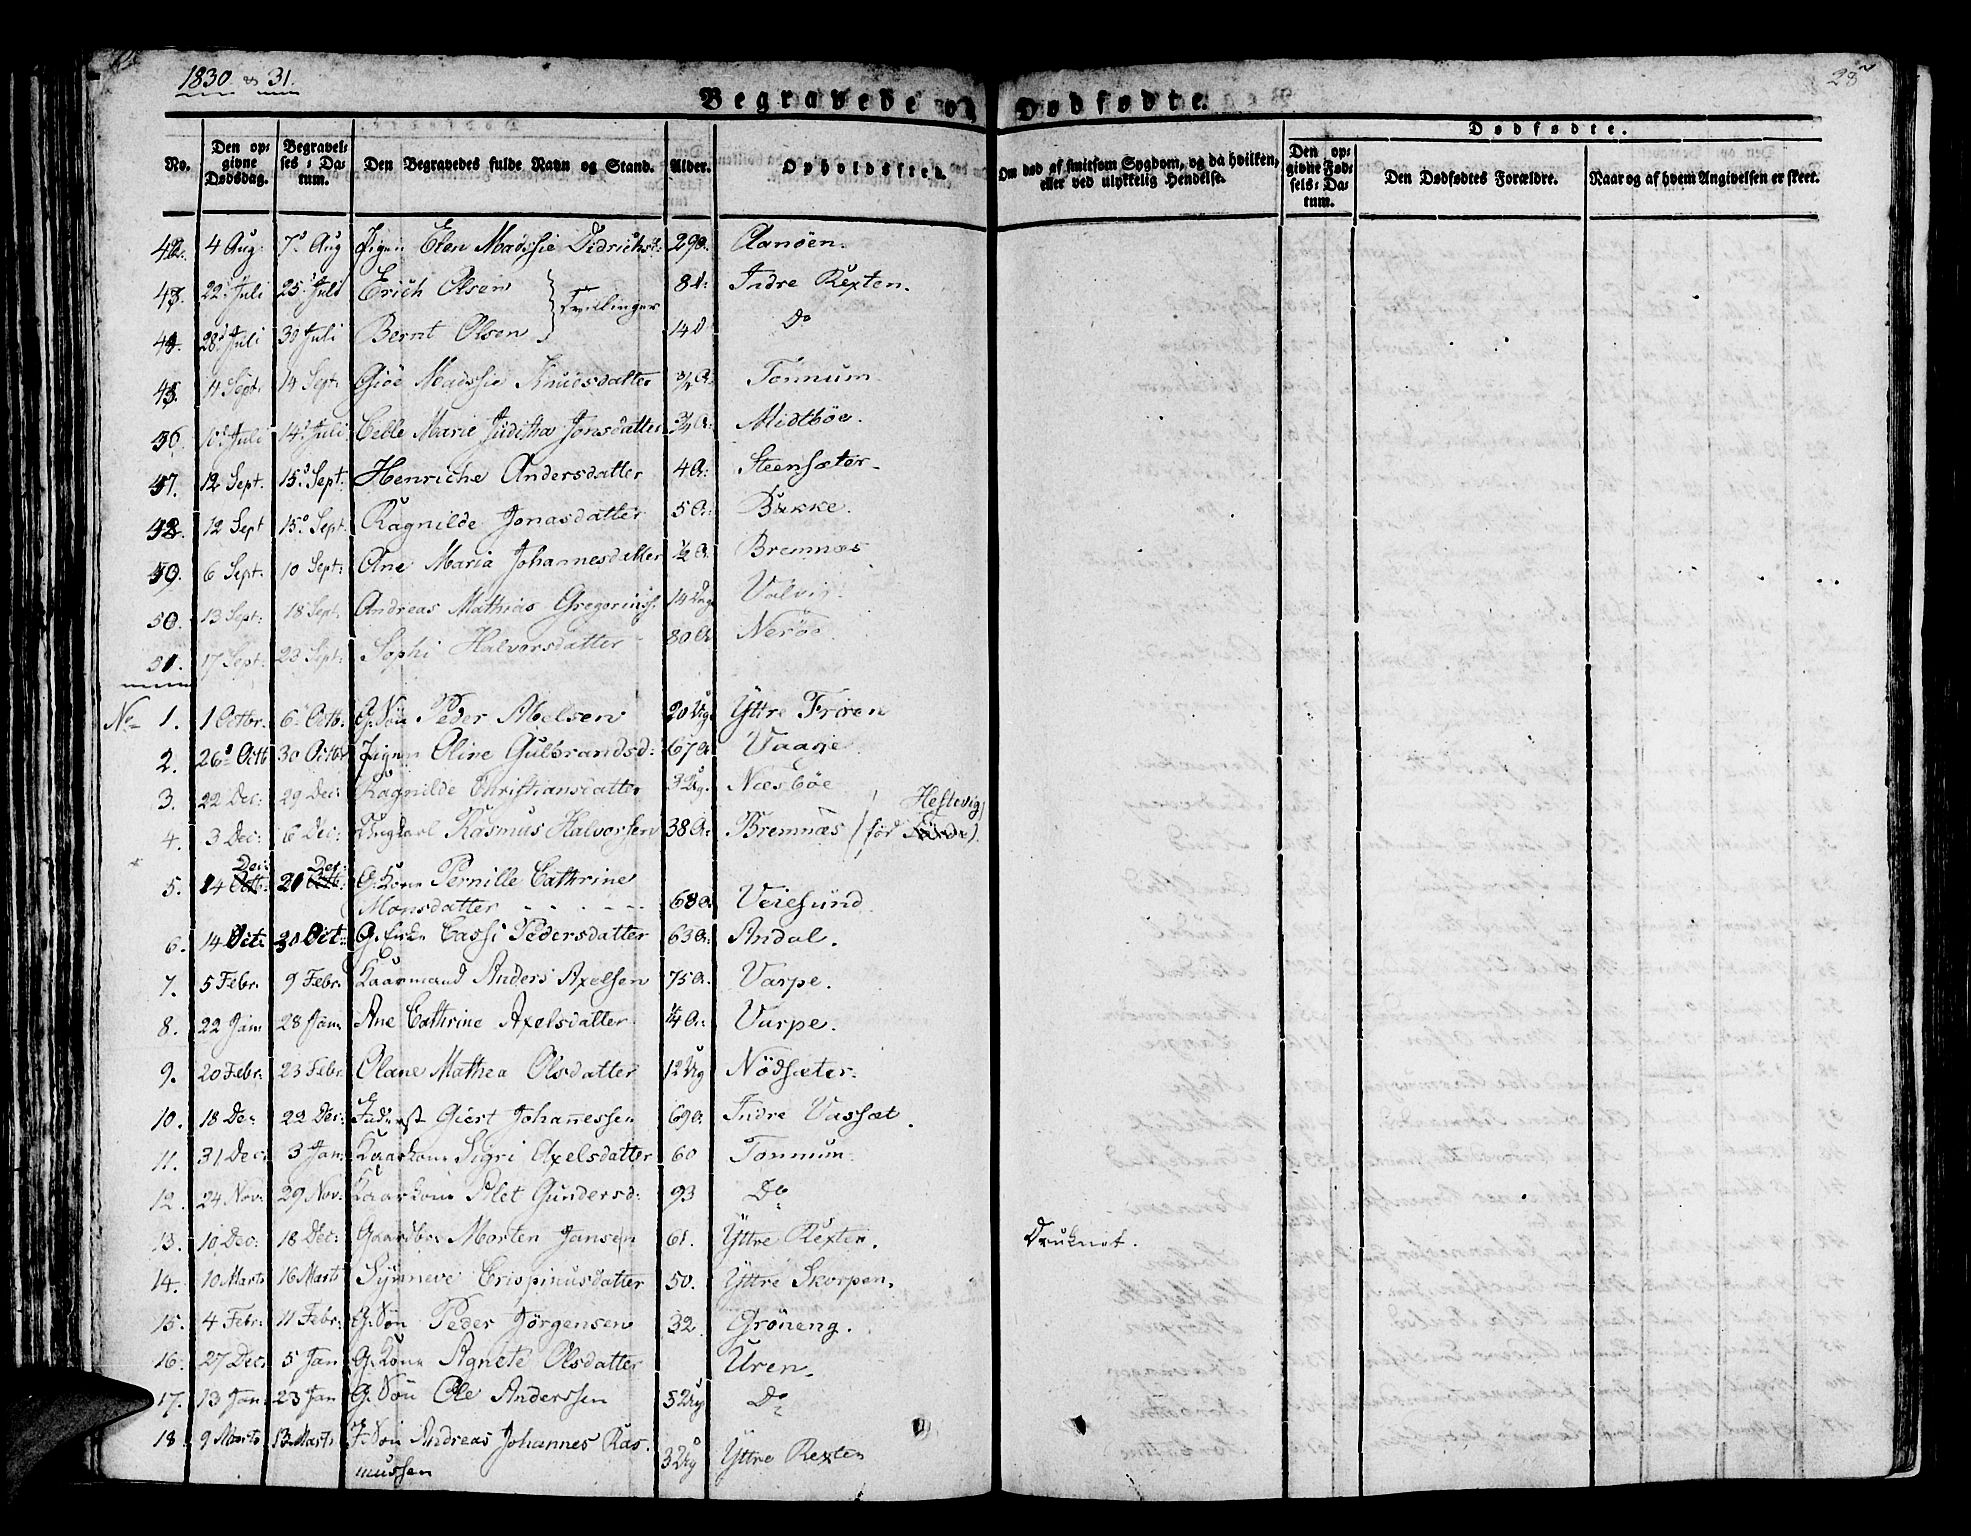 1830 & 31.
28
Begravede og Dødfødte.
No. Den opgivne Dødsdag. Begravelses-Datum. Den Begravedes fulde Navn og Stand. Alder. Opholdssted. Om død af smitsom Sygdom, og da hvilken, eller ved ulykkelig Hendelse. Dødfødte. Den opgivne Fødsels-Datum. Den Dødfødtes Forældre. Naar og af hvem Angivelsen er skeet.
42. 4 Aug: 7 Aug Pigen Elen Madssie Didrichsd: 29 A. Aanöen.
43. 22 Juli 25 Juli Erich Olsen } Tvillinger 8 d: Indre Rexten.
44. 28 Juli 30 Juli Bernt Olsen 14 d Do
45. 11 Sept. 14 Sept: Giöe Madssie Knudsdatter 3/4 A. Tonnum
46. 10 Juli 14 Juli Celle Marie Juditha Jonsdatter 3/4 A: Midtböe.
47. 12 Sept. 15 Sept: Henriche Andersdatter 4 A: Steensæter
48. 12 Sept 15 Sept. Ragnilde Jonasdatter 5 A: Bakke.
49. 6 Sept: 10 Sept: Ane Maria Johannesdatter 1/2 A. Bremnæs
50. 13 Sept: 18 Sept. Andreas Mathias Gregoriuss: 14 Uge Valvig.
51. 17 Sept. 23 Sept: Sophi Halvorsdatter 80 A Neröe.
No 1. 1 Octbr. 6 Octb: G. Sön Peder Abelsen 20 Ug Yttre Frören
2. 26 Octb 30 Octbr Pigen Oline Gulbrandsd: 67 A Vaage.
3. 22 Dec: 29 Dec: Ragnilde Christiansdatter 3 Ug. Næsböe
4. 3 Dec: 6 Dec: Ungkarl Rasmus Halvorsen 38 A: Bremnæs (föd Hestevig)
5. 14 Dec: 21 Dec: G. Kone Pernille Cathrine
Monsdatter - - - - 68 A. Veiesund
6. 14 Oct: Oct: G. Enke Cassi Pedersdatter 63 A: Andal.
7. 5 Febr. 9 Febr. Kaarmand Anders Axelsen 75 A. Varpe.
8. 22 Jan 28 Jan: Ane Cathrine Axelsdatter 1/4 A: Varpe.
9. 20 Febr: 23 Febr. Olane Mathea Olsdatter 12 Ug Nödsæter.
10. 18 Dec 22 Dec: Inderst Giert Johannessen 69 A. Indre Vassæt.
11. 31 Dec: 3 Jan: Kaarkone Sigri Axelsdatter 60 Tonnum.
12. 24. Nov. 29 Nov: Kaarkone Olet Gundersd: 93 Do
13. 10 Dec: 18 Dec: Gaardbr: Morten Jansen 61. Yttre Rexten. Druknet.
14. 10 Marts 16 Marts Synneve Crispinusdatter 50. Yttre Skorpen.
15. 4 Febr: 11 Febr: G. Sön Peder Jörgensen 32. Gröneng.
16. 27 Dec. 5 Jan G. Kone Agnete Olsdatter Uren.
17. 13 Jan. 23 Jan G. Sön Ole Anderssen 5 Ug Do
18. 9 Marts 13 Marts Sön Andreas Johannes Ras.
mussen 3 Ug Yttre Rexten